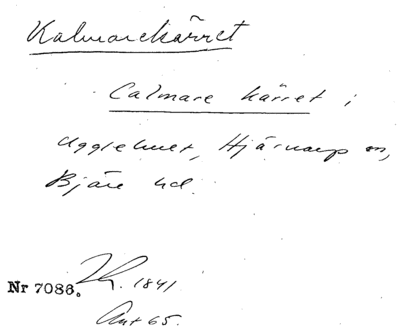 Kalmarekärret
Calmare kärret i
Agglehult, Hjärnarp sn,
Bjäre hd.
Nr 7086. 1841
Ant 65.